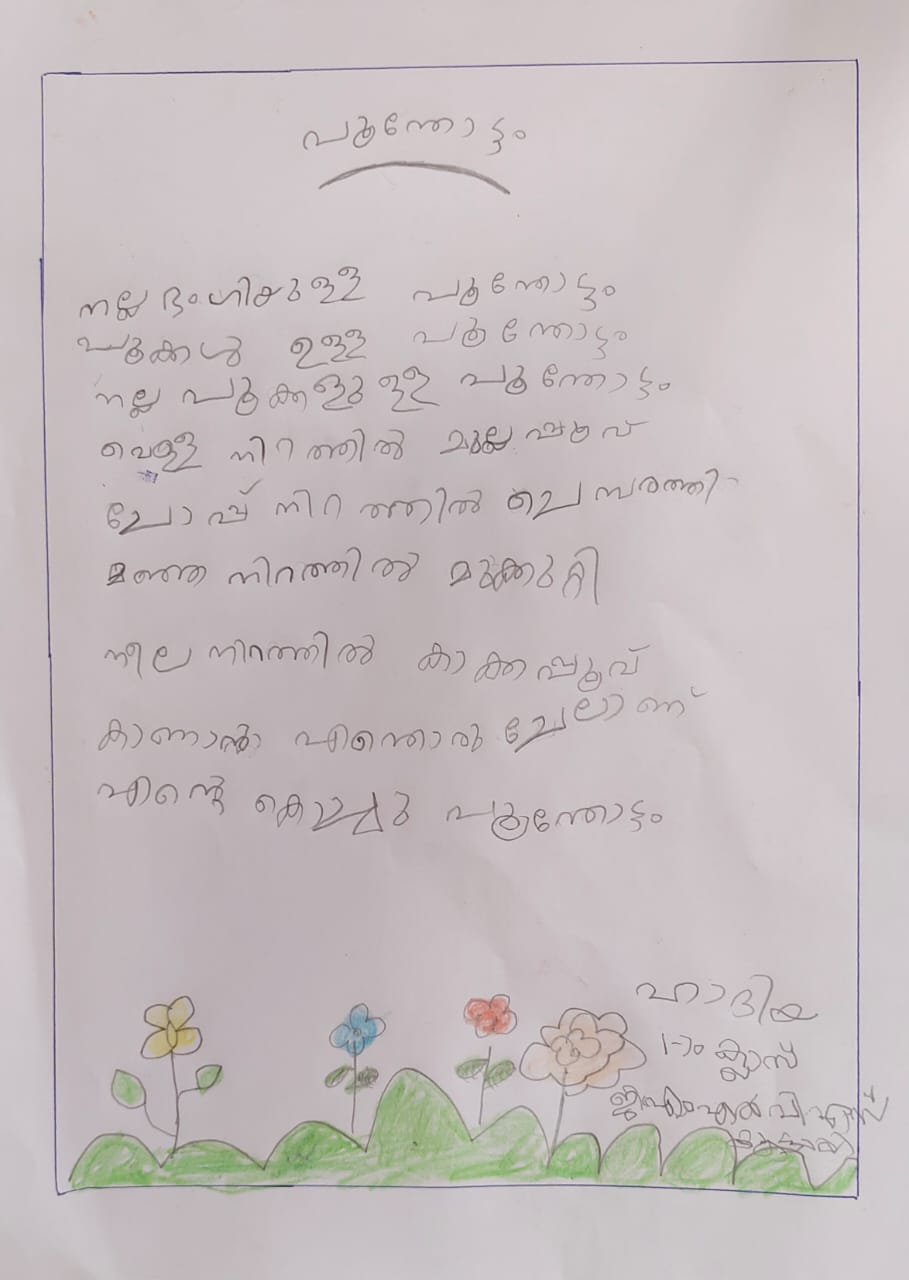 പൂന്തോട്ടം
നല്ല ഭംഗിയുള്ള പൂന്തോട്ടം
പൂക്കൾ ഉള്ള പൂന്തോട്ടം
നല്ല പൂക്കളുള്ള പൂന്തോട്ടം
വെള്ള നിറത്തിൽ മുല്ലപ്പൂവ്
ചോപ്പ് നിറത്തിൽ ചെമ്പരത്തി
മഞ്ഞ നിറത്തിൽ മുക്കുറ്റി
നീല നിറത്തിൽ കാക്കപ്പൂവ്
കാണാൻ എന്തൊരു ചേലാണ്
എന്റെ കൊച്ചു പൂന്തോട്ടം
ഹാദിയ
1-ാം ക്ലാസ്